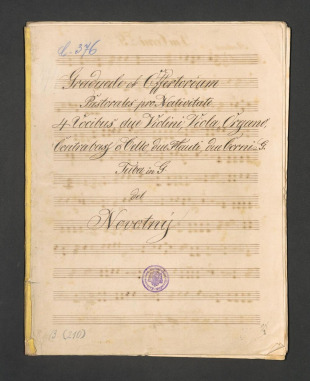 A. 376
Graduale et Offertorium
Pastorales pro Nativitate
4 Vocibus due Violini, Viola, Organo,
Contrabass o Cello due Flauti, due Corni in G
Tuba in G
del
Novotný
(210)